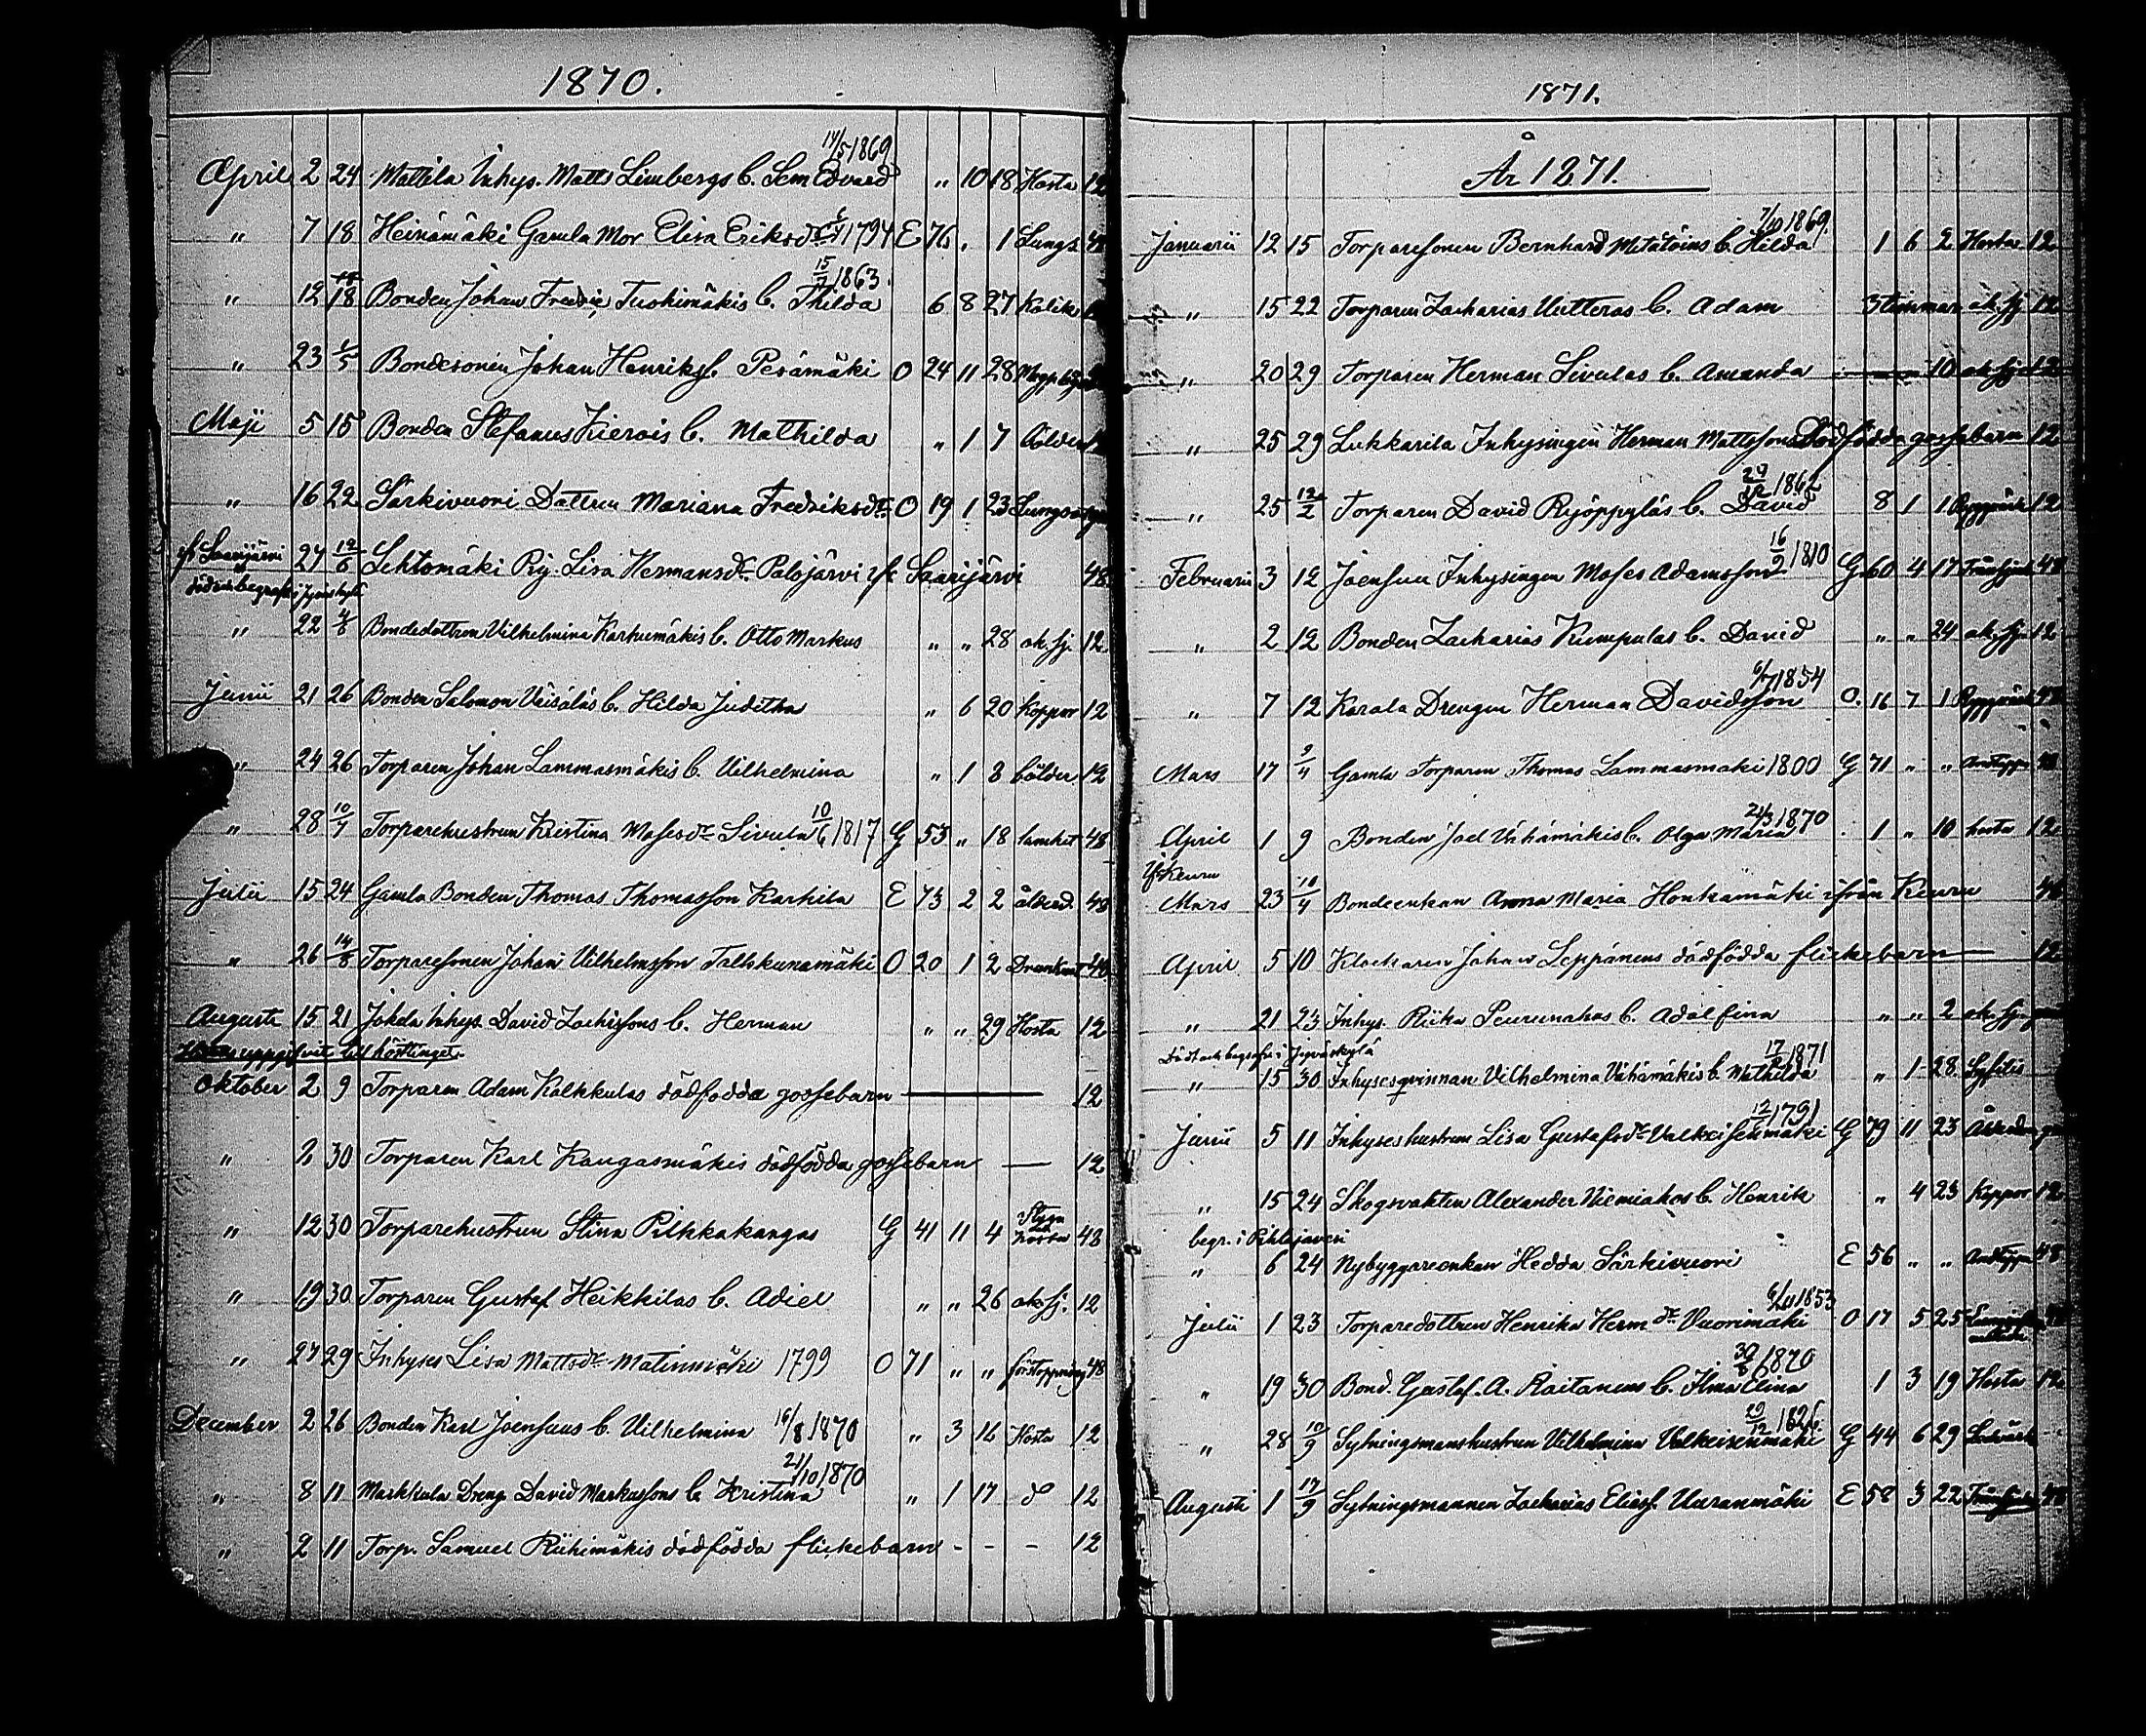 1870.
14/5 1869
April 2 24 Mattila Inhys. Matts Limbergs b. Sem Edvard " 10 18 Hosta 12
" 7 18 Heinämäki Gamla Mor Elisa Eriksdr 1794 E 76 " 1 Lungs. 48
15/7 1863.
" 12 18 Bonden Johan Fredric Tuohimäkis b. Thilda 6 8 27 Kolik
" 23 1/5 Bondesonen Johan Henrikss. Pesämäki O 24 11 28
Maji 5 15 Bonden Stefanus Kierois b. Mathilda " 1 7 bölder
" 16 22 Särkivuori Dottren Mariana Fredriksdr O 19 1 23
ifr Saarijärvi 27 12/6 Lehtomäki Pig. Lisa Hermansdr Palojärvi ifr Saarijärvi 48
död och begrafv. i Jyväskylä
" 22 4/6 Bondedottren Vilhelmina Karkumäkis b. Otto Markus " " 28 ok. sj. 12
Junii 21 26 Bonden Salomon Väisäläs b. Hilda Juditha " 6 20 koppor 12
" 24 26 Torparen Johan Lammasmäkis b. Vilhelmina " 1 3 bölder 12
" 28 10/7 Torparehustrun Kristina Mosesdr Sivula 10/6 1817 G 53 " 18 lamhet 48
Julii 15 24 Gamla Bonden Thomas Thomasson Karhila E 73 2 2 ålderd. 48
" 26 14/8 Torparesonen Johan Vilhelmsson Tallskunamäki O 20 1 2 Drunknat 48
Augusti 15 21 Jokela Inhys. David Zachrissons b. Herman " " 29 Hosta 12
uppgifvit till hösttinget.
Oktober 2 9 Torparen Adam Kalkkulas dödfödda gossebarn 12
" 2 30 Torparen Karl Kangasmäkis dödfödda gossebarn — 12
" 12 30 Torparehustrun Stina Pilkkakangas G 41 11 4 Stygn och hosta 48
" 19 30 Torparen Gustaf Heikkilas b. Adiel " " 26 ok. sj. 12
" 27 29 Inhyses Lisa Mattsdr Matinmäki 1799 O 71 " " förstoppning 48
December 2 26 Bonden Karl Joensuus b. Vilhelmina 16/8 1870 " 3 16 Hosta 12
21/10 1870
" 8 11 Markkula Dreng David Markussons b. Kristina " 1 17 do 12
" 2 11 Torp. Samuel Riihimäkis dödfödda flickebarn - - - 12
1871.
År 1871.
7/10 1869.
Januarii 12 15 Torparesonen Bernhard Metätöins b. Hilda 1 6 2 Hosta 12
" 15 22 Torparen Zacharias Uutteras b. Adam 3 timmar ok. sj. 12
" 20 29 Torparen Herman Sivulas b. Amanda — 10 ok. sj. 12
" 25 29 Lukkarila Inhysingen Herman Mattssons Dödfödda gossebarn 12
24/12 1862
" 25 12/2 Torparen David Ryöppyläs b. David 8 1 1 Ryggvärk 12
16/9 1810
Februarii 3 12 Joensuu Inhysingen Moses Adamsson G. 60 4 17 48
" 2 12 Bonden Zacharias Kumpulas b. David " " 24 ok. sj. 12
6/7 1854
" 7 12 Karala Drengen Herman Davidsson O. 16 7 1 Ryggvärk 48
Mars 17 9/4 Gamla Torparen Thomas Lammasmäki 1800 G 71 " " Andtäppa 48
24/3 1870
April 1 9 Bonden Joel Vähämäkis b. Olga Maria 1 " 10 hosta 12
ifr Keuru
Mars 23 10/4 Bondeenkan Anna Maria Honkamäki ifrån Keuru 48
April 5 10 Klockaren Johan Leppänens dödfödda flickebarn — 12
" 21 23 Inhys. Riika Peurunahos b. Adolfina " " 2 ok. sj.
Död och begrafv i Jyväskylä 17/2 1871
" 15 30 Inhysesqvinnan Vilhelmina Vähämäkis b. Mathilda " 1 28 Syfilis
12/6 1791
Junii 5 11 Inhyseshustrun Lisa Gustafsdr Valkeisenmäki G 79 11 23
" 15 24 Skogsvakten Alexander Niemiahos b. Henrik " 4 23 Koppor 12
begr. i Pihlajaveri
" 6 24 Nybyggareenkan Hedda Särkivuori E 56 " " Andtäppa 48
1853
Julii 1 23 Torparedottren Henrika Herm.dr Vuorimäki O 17 5 25
30/3 1870
" 19 30 Bond. Gustaf. A. Raitanens b. Ilma Elina 1 3 19 Hosta 12
29/12 1826.
" 28 10/9 Sytningsmanshustrun Vilhelmina Valkeisenmäki G 44 6 29
Augusti 1 17/9 Sytningsmannen Zacharias Eliass. Uuranmäki E 58 3 22 48